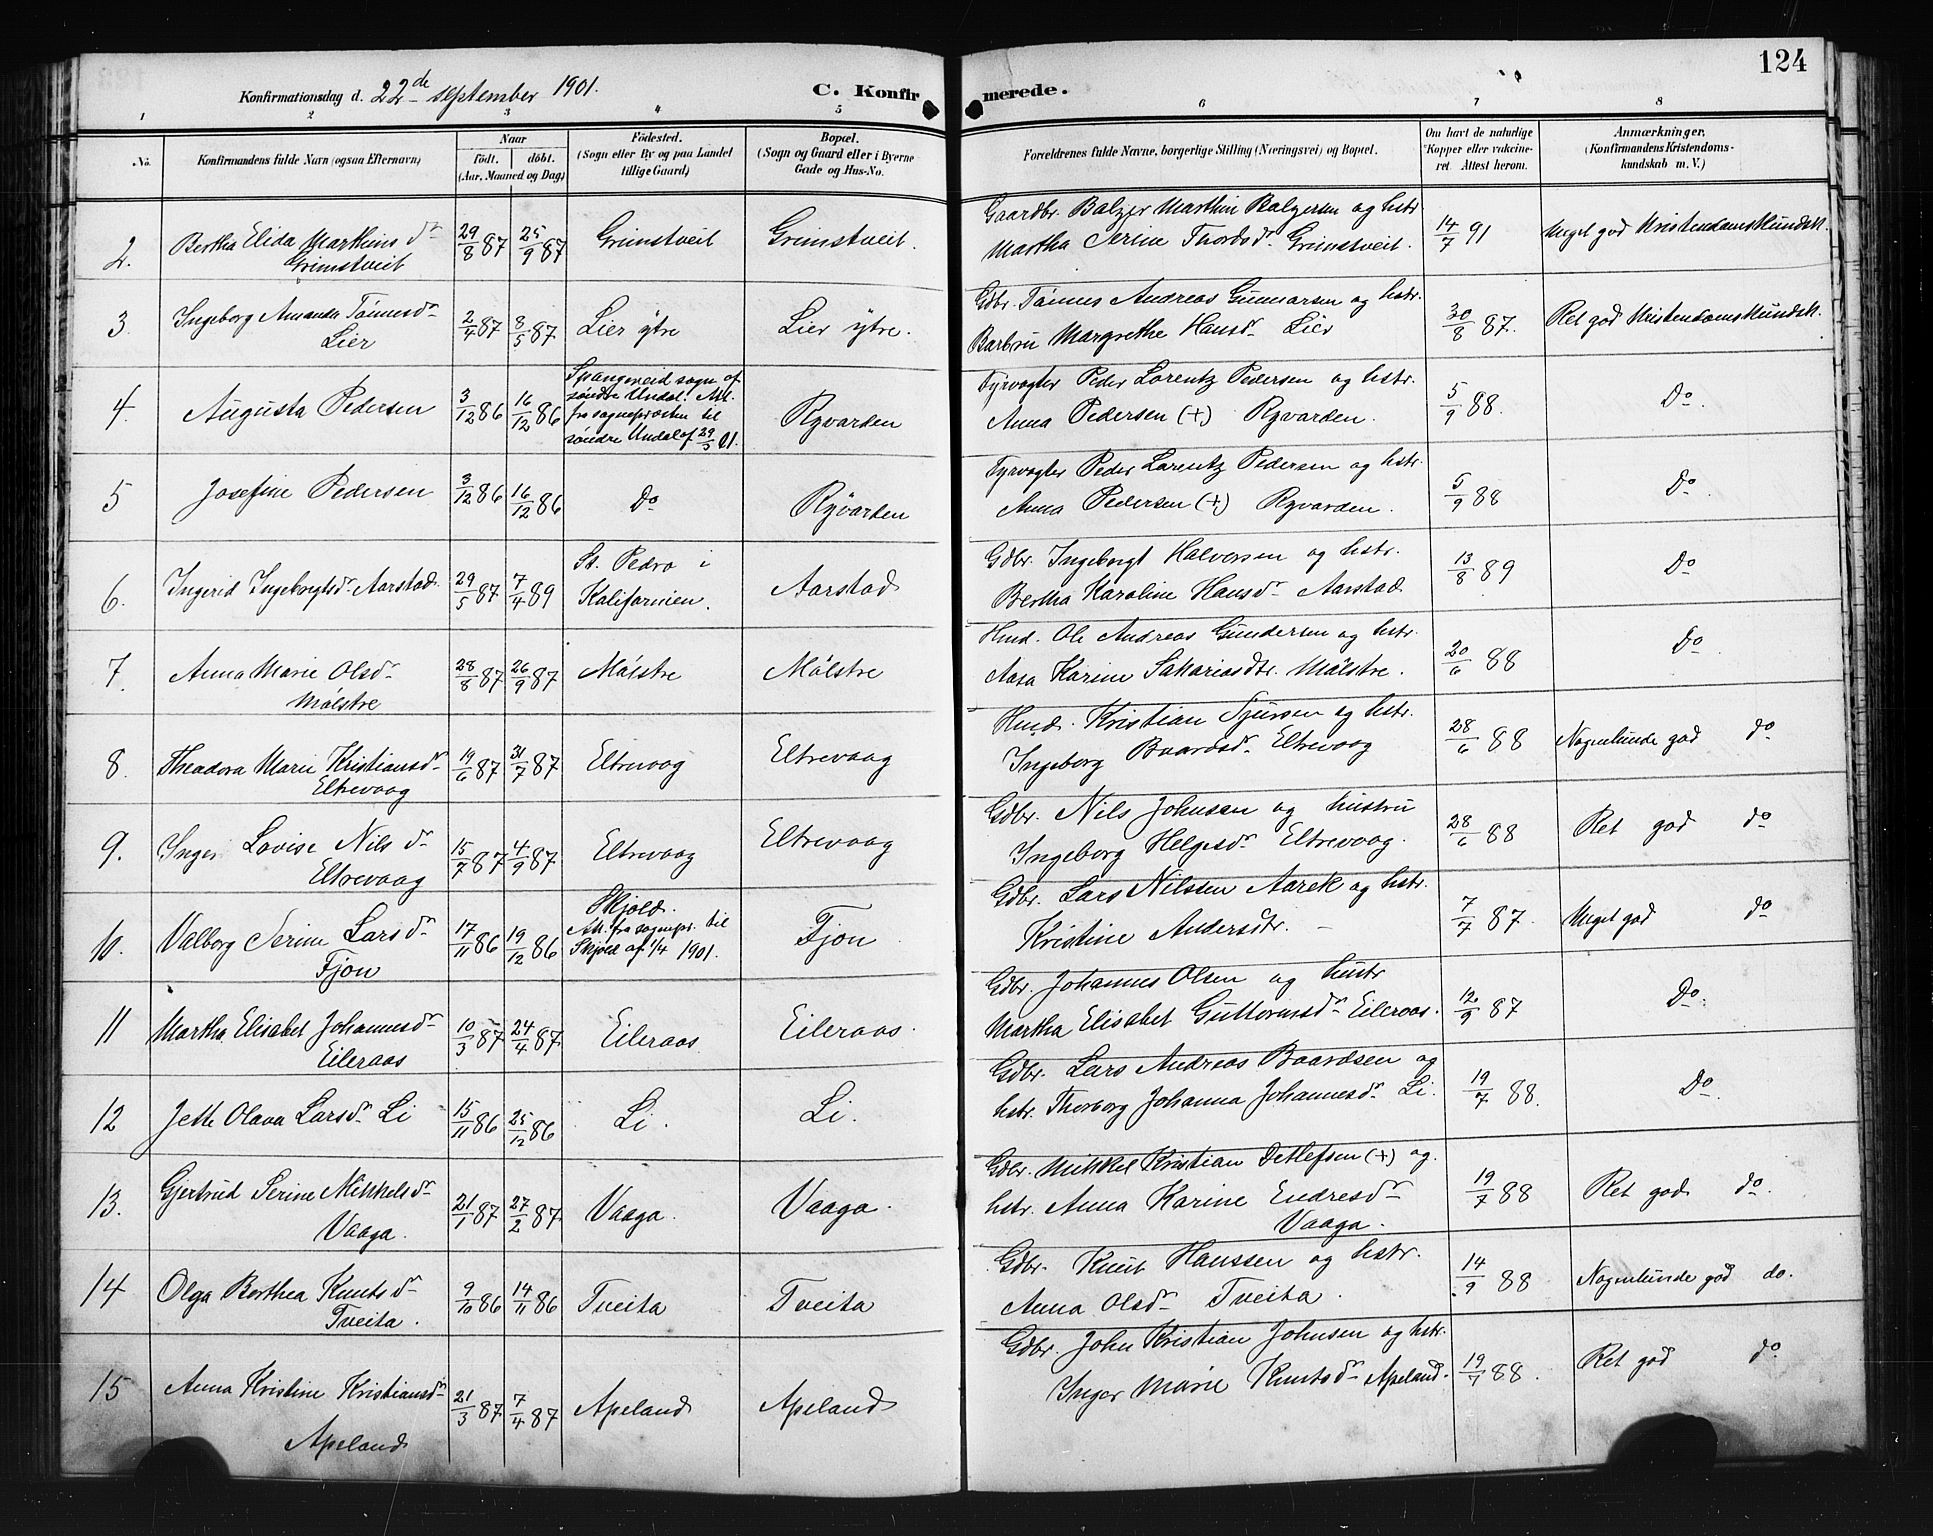 124
Konfirmationsdag d. 22de september 1901. C. Konfirmerede.
1 2 3 4 5 6 7 8
No. Konfirmandens fulde Navn (ogsaa Efternavn) Naar födt. döbt. (Aar, Maaned og Dag) Födested. (Sogn eller By og paa Landet tillige Gaard) Bopæl. (Sogn og Gaard eller i Byerne Gade og Hus-No. Forældrenes fulde Navne, borgerlige Stilling (Næringsvei) og Bopæl. Om havt de naturlige Kopper eller vakcineret. Attest herom. Anmærkninger. (Konfirmandens Kristendomskundskab m. V.)
2. Bertha Elida Marthins dr Grimstveit 29/8 87 25/9 87 Grimstveit Grimstveit. Gaardbr. Balzer Marthin Balzersen og hstr Martha Serine Thordsdr Grimstveit. 14/7 91 Meget god Kristendomskundsk.
3. Ingeborg Amanda Tönnesdr Lier 2/4 87 8/5 87 Lier ytre Lier ytre. Gdbr. Tönnes Andreas Gunnarsen og hstr. Barbru Margrethe Hansdr Lier 30/8 87. Ret god Kristendomskundsk.
4. Augusta Pedersen 3/12 86 16/12 86 Spangereid sogn af söndre Undal. Att. fra sognepresten til söndre Undal af 29/3 01. Ryvarden Fyrvogter Peder Lorentz Pedersen og hstr. Anna Pedersen (+) Ryvarden. 5/9 88. Do.
5 Josefine Pedersen 3/12 86 16/12 86 Do Ryvarden Fyrvogter Peder Lorentz Pedersen og hstr. Anna Pedersen (+) Ryvarden. 5/9 88 Do.
6. Ingerid Ingebrogtsdr Aarstad 29/5 87 7/4 89 St. Pedro i Kalifornien. Aarstad Gdbr. Ingebrogt Halvorsen og hstr. Bertha Karoline Hansdr Aarstad 13/8 89 Do
7. Anna Marie Olsdr Mölstre 28/8 87 26/9 87 Mölstre Mölstre Hmd. Ole Andreas Gundersen og hstr. Aasa Karine Sakariasdtr. Mölstre. 20/6 88 Do
8. Theodora Marie Kristiansdr Eltrevaag 19/6 87 31/7 87 Eltrevaag Eltrevaag Hmd. Kristian Sjursen og hstr. Ingeborg Baardsdr Eltrevaag 28/6 88 Nogenlunde god do
9. Inger Lovise Nilsdr Eltrevaag 15/7 87 4/9 87 Eltrevaag Eltrevaag Gdbr. Nils Johnsen og hustru Ingeborg Helgesdr Eltrevaag. 28/6 88 Ret god do
10. Valborg Serine Larsdr Fjon 17/11 86 19/12 86 Skjold. Att. fra sognepr. til Skjold af 1/4 1901. Fjon Gdbr. Lars Nilssen Aarek og hstr. Kristine Andersdtr. – 7/7 87. Meget god do
11 Martha Elisabet Johannesdr Eileraas 10/3 87 24/4 87 Eileraas Eileraas. Gdbr. Johannes Olsen og hustr Martha Elisabet Guttormsdr Eileraas. 12/9 87 Do.
12 Jette Olava Larsdr Li 15/11 86 25/12 86 Li. Li. Gdbr. Lars Andreas Baardsen og hstr. Thorborg Johanna Johannesdr Li. 19/7 88. Do.
13. Gjertrud Serine Mikkelsdr Vaaga. 21/1 87 27/2 87 Vaaga. Vaaga. Gdbr. Mikkel Kristian Detlefsen (+) og. hstr. Anna Karine Endresdr Vaaga. 19/7 88 Ret god do.
14 Olga Berthea Knutsdr Tveita. 9/10 86 14/11 86 Tveita Tveita Gdbr. Knut Hanssen og hstr. Anna Olsdr Tveita. 14/9 88 Nogenlunde god do.
15 Anna Kristine Kristiansdr Apeland 21/3 87 7/4 87 Apeland Apeland Gdbr. John Kristian Johnsen og hstr. Inger Marie Knutsdr Apeland. 19/7 88. Ret god do